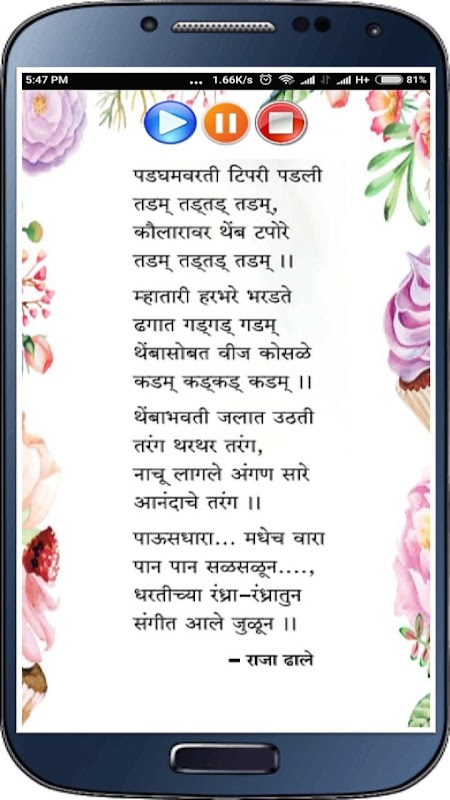 5:47 PM ... 1.66K/s H+ 81%
पडघमवरती टिपरी पडली
तडम् तड्तड् तडम्,
कौलारावर थेंब टपोरे
तडम् तड्तड् तडम् ।।
म्हातारी हरभरे भरडते
ढगात गड्गड् गडम्
थेंबासोबत वीज कोसळे
कडम् कड्कड् कडम् ।।
थेंबाभवती जलात उठती
तरंग थरथर तरंग,
नाचू लागले अंगण सारे
आनंदाचे तरंग ।।
पाऊसधारा... मधेच वारा
पान पान सळसळून....,
धरतीच्या रंध्रा–रंध्रातुन
संगीत आले जुळून ।।
– राजा ढाले